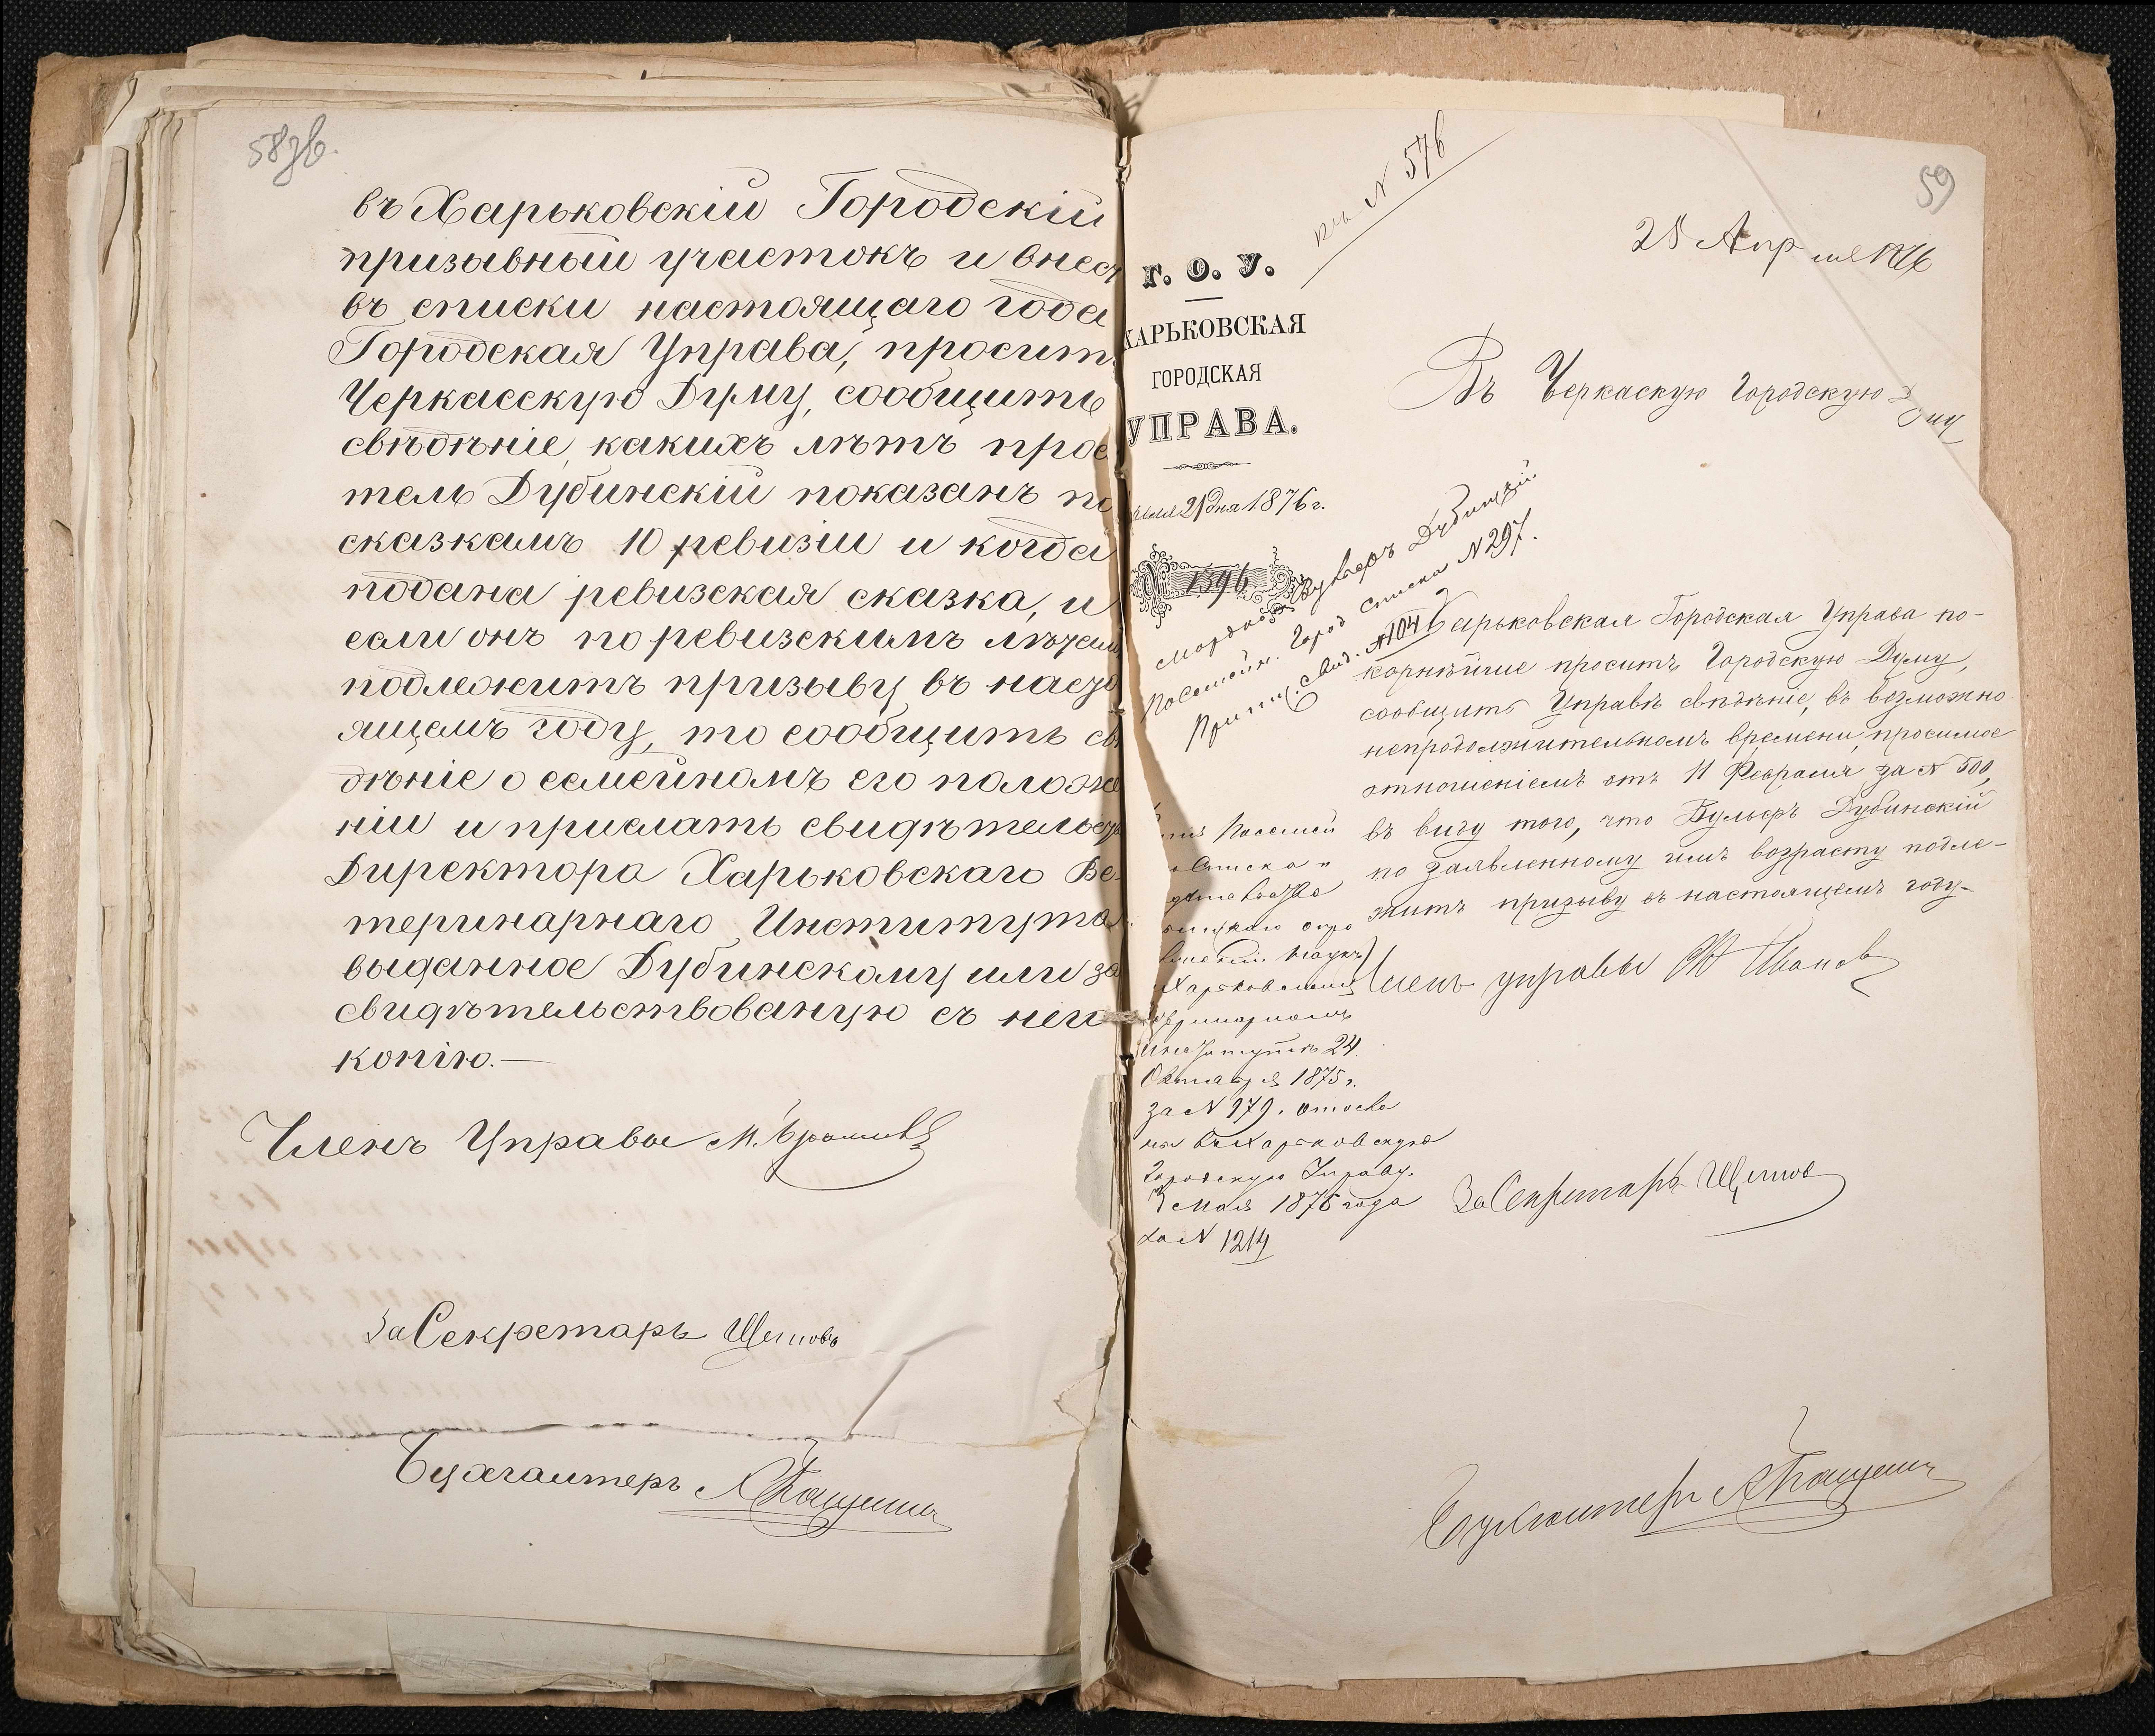 58об.
въ Харьковскій Городскій
призывный участокъ и внест
въ списки настоящаго года
Городская Управа, просит
Черкасскую Думу, сообщить
свѣдѣніе, какихъ лѣтъ прос
тель Дубинскій показанъ по
сказкамъ 10 ревизіи и когда
подана ревизская сказка, и
если онъ по ревизскимъ лѣтам
подлежитъ призыву въ насто
ящемъ году, то сообщить св
дѣніе о семейномъ его положе
ніи и прислать свидѣтельст
Директора Харьковскаго Ве
теринарнаго Института
выданное Дубинскому или за
свидѣтельствованую съ него
копію.—
Членъ Управы
За Секретаря Щепновъ
Бухгалтеръ
59
къ N 576
28 Апрѣля 1876
Г. О. У.
ХАРЬКОВСКАЯ
ГОРОДСКАЯ
УПРАВА.
21 дня 1876 г.
№ 1396
Въ Черкаскую Городскую Думу
Вульфъ Дубинскій
Посемейн. Город списка N 297.
Припис. свид. N 104
Харьковская Городская Управа по-
корнѣйше проситъ Городскую Думу,
сообщить Управѣ свѣдѣніе, въ возможно
непродолжительномъ времени, просимое
отношеніемъ отъ 11 Февраля за N 500,
въ виду того, что Вульфъ Дубинскій
по заявленному имъ возрасту подле-
житъ призыву въ настоящемъ году.
Членъ управы Ивановъ
Посемей
списка
Харьковскимъ
Институтѣ 24
Октября 1875 г.
за N 979.
въ Харьковскую
Городскую Управу.
3 Мая 1876 года
за N 1214
За Секретаря Щепновъ
Бухгалтеръ